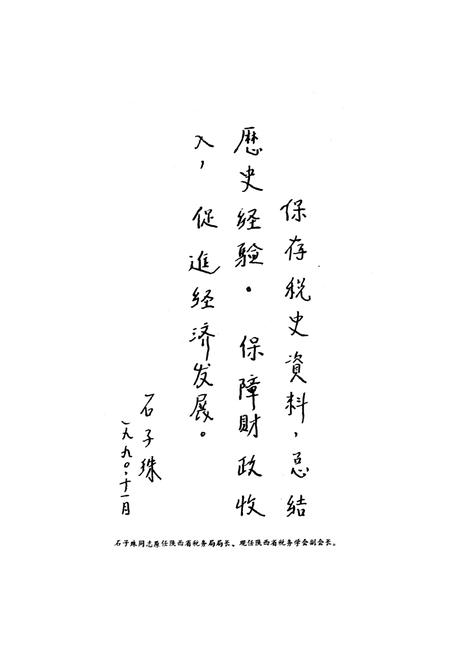 保存税史資料，总结
歷史経验。保障財政收
入，促進経济发展。
石子珠
一九九〇．十一月
石子珠同志原任陕西省税务局局长、现任陕西省税务学会副会长。